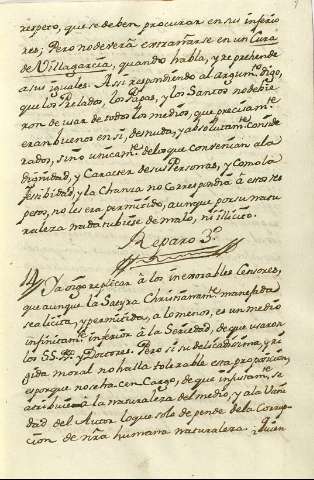 respeto, que se deben procurar en su inferio
res, Pero no deverá extrañarse en un Cura
de Villagarcia, quando habla, y reprehende
a sus iguales. Assi respondiendo al argumto. digo,
que los Prelados, los Papas, y los Santos no debie
ron de usar de todos los medios, que precisamte.
eran buenos en si, desnuda, y absolutamte. conside
rados, sino unicamte. de los que convenian a la
dignidad, y Caracter de sus Personas, y como la
festibidad, y la chanza no correspondia à estos res
petos, no les era permitido, aunque por su natu
raleza nada tubiese de malo, ni illicito.
Reparo 3º.
Ya oygo replicar à los inexorables Censores,
que aunque la Satyra Christianamte. manejada
sea licita, y permitida, a lo menos, es un medio
infinitamte. inferior à la Seriedad, de que usaron
los SS. PPs. y Doctores. Pero si su delicadissima, y ri
gida moral no halla tolerable esta proposicion,
es porque no se hacen Cargo, de que injustamte. se
atribuie à la naturaleza del medio, y a la Vani
dad del Autor lo que solo depende de la Corrup
cion de nra humana naturaleza. Quien